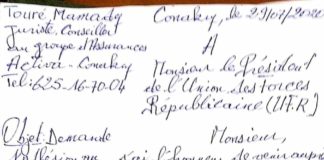 Touré Mamady
Juriste, Conseiller
au groupe d'Assurances
Activa - Conakry
Tel: 625-16-70-04
Conakry, le 29/07/2020
A
Monsieur le Président
de l'Union des Forces
Républicaine (UFR)
Objet: Demande
d'Adhésion au
Monsieur,
J'ai l'honneur de venir